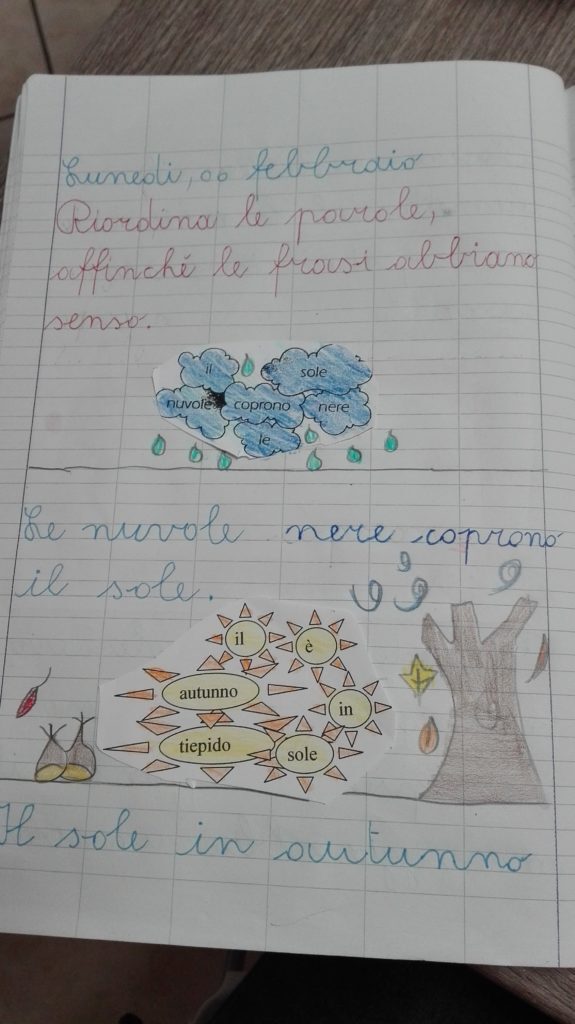 Lunedì, 06 febbraio
Riordina le parole,
affinché le frasi abbiano
senso.
il
sole
nuvole coprono nere
le
Le nuvole nere coprono
il sole.
il è
autunno
in
tiepido
sole
Il sole in autunno